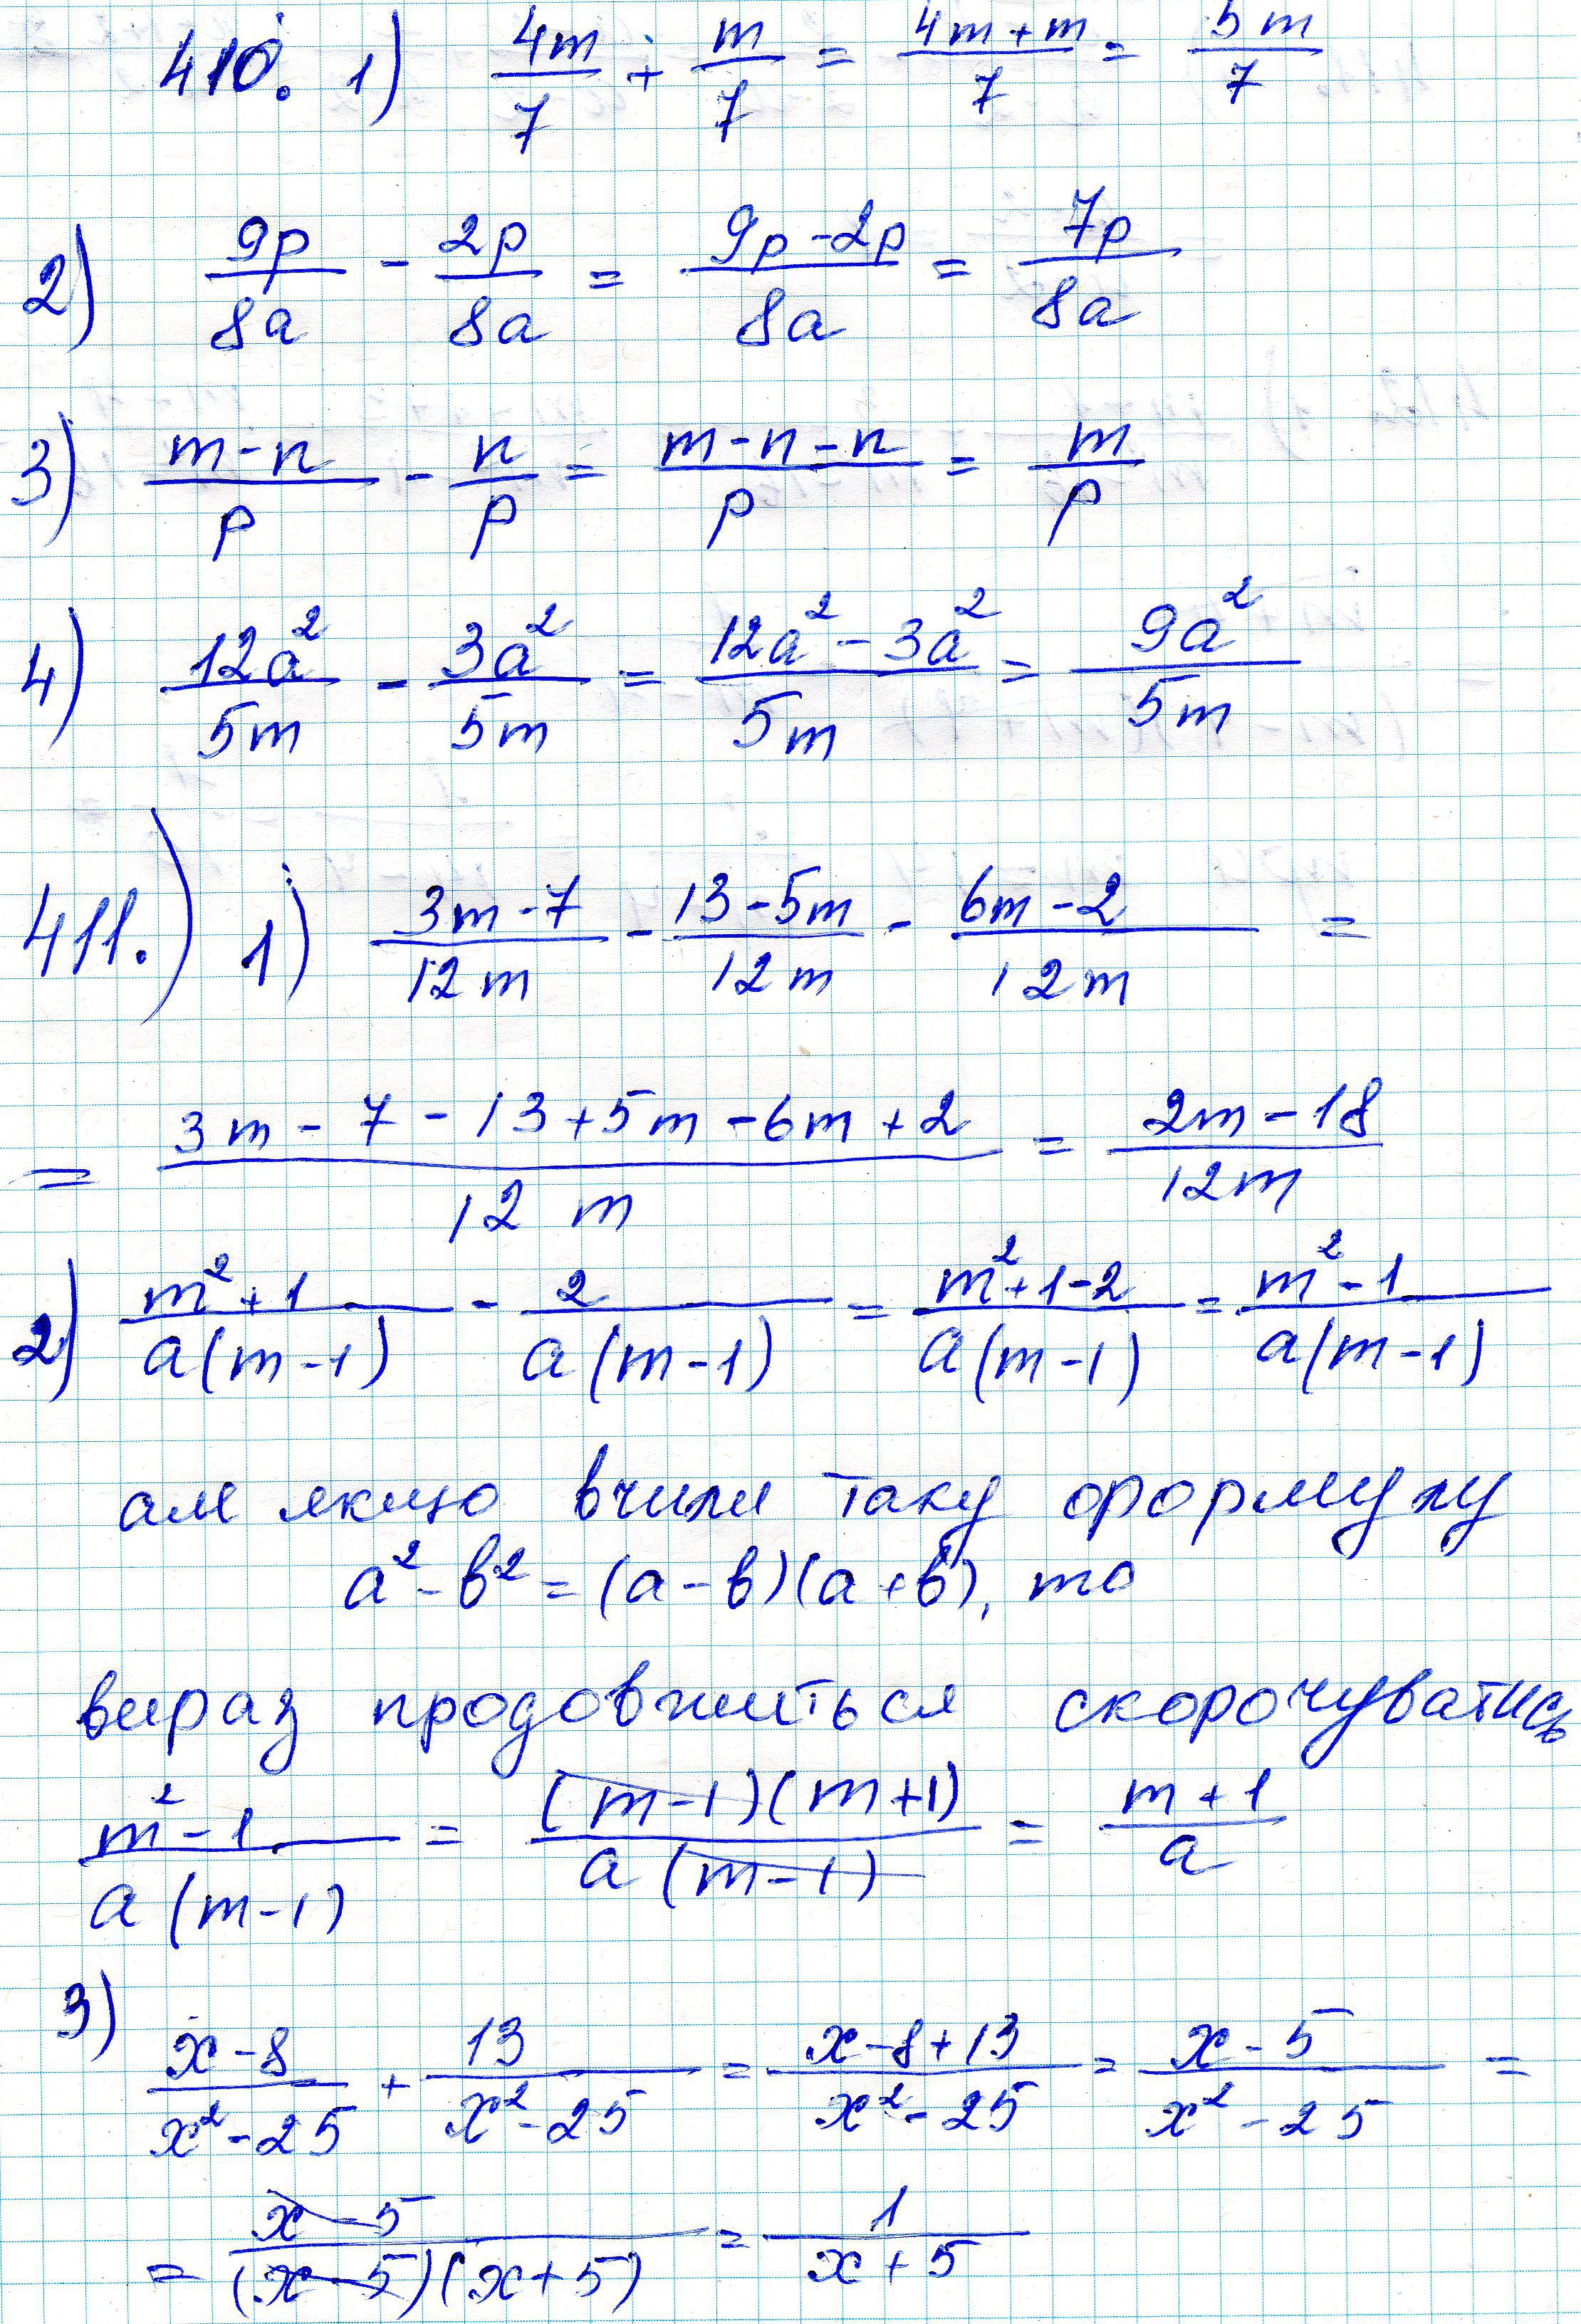 410. 1) 4m/7 + m/7 = 4m+m/7 = 5m/7
2) 9p/8a - 2p/8a = 9p-2p/8a = 7p/8a
3) m-n/p - n/p = m-n-n/p = m/p
4) 12a²/5m - 3a²/5m = 12a²-3a²/5m = 9a²/5m
411.) 1) 3m-7/12m - 13-5m/12m - 6m-2/12m =
= 3m-7-13+5m-6m+2/12m = 2m-18/12m
2) m²+1/a(m-1) - 2/a(m-1) = m²+1-2/a(m-1) = m²-1/a(m-1)
але якщо вчили таку формулу
a²-b²=(a-b)(a+b), то
вираз продовжиться скорочуватись
m²-1/a(m-1) = (m-1)(m+1)/a(m-1) = m+1/a
3)
x-8/x²-25 + 13/x²-25 = x-8+13/x²-25 = x-5/x²-25 =
= x-5/(x-5)(x+5) = 1/x+5